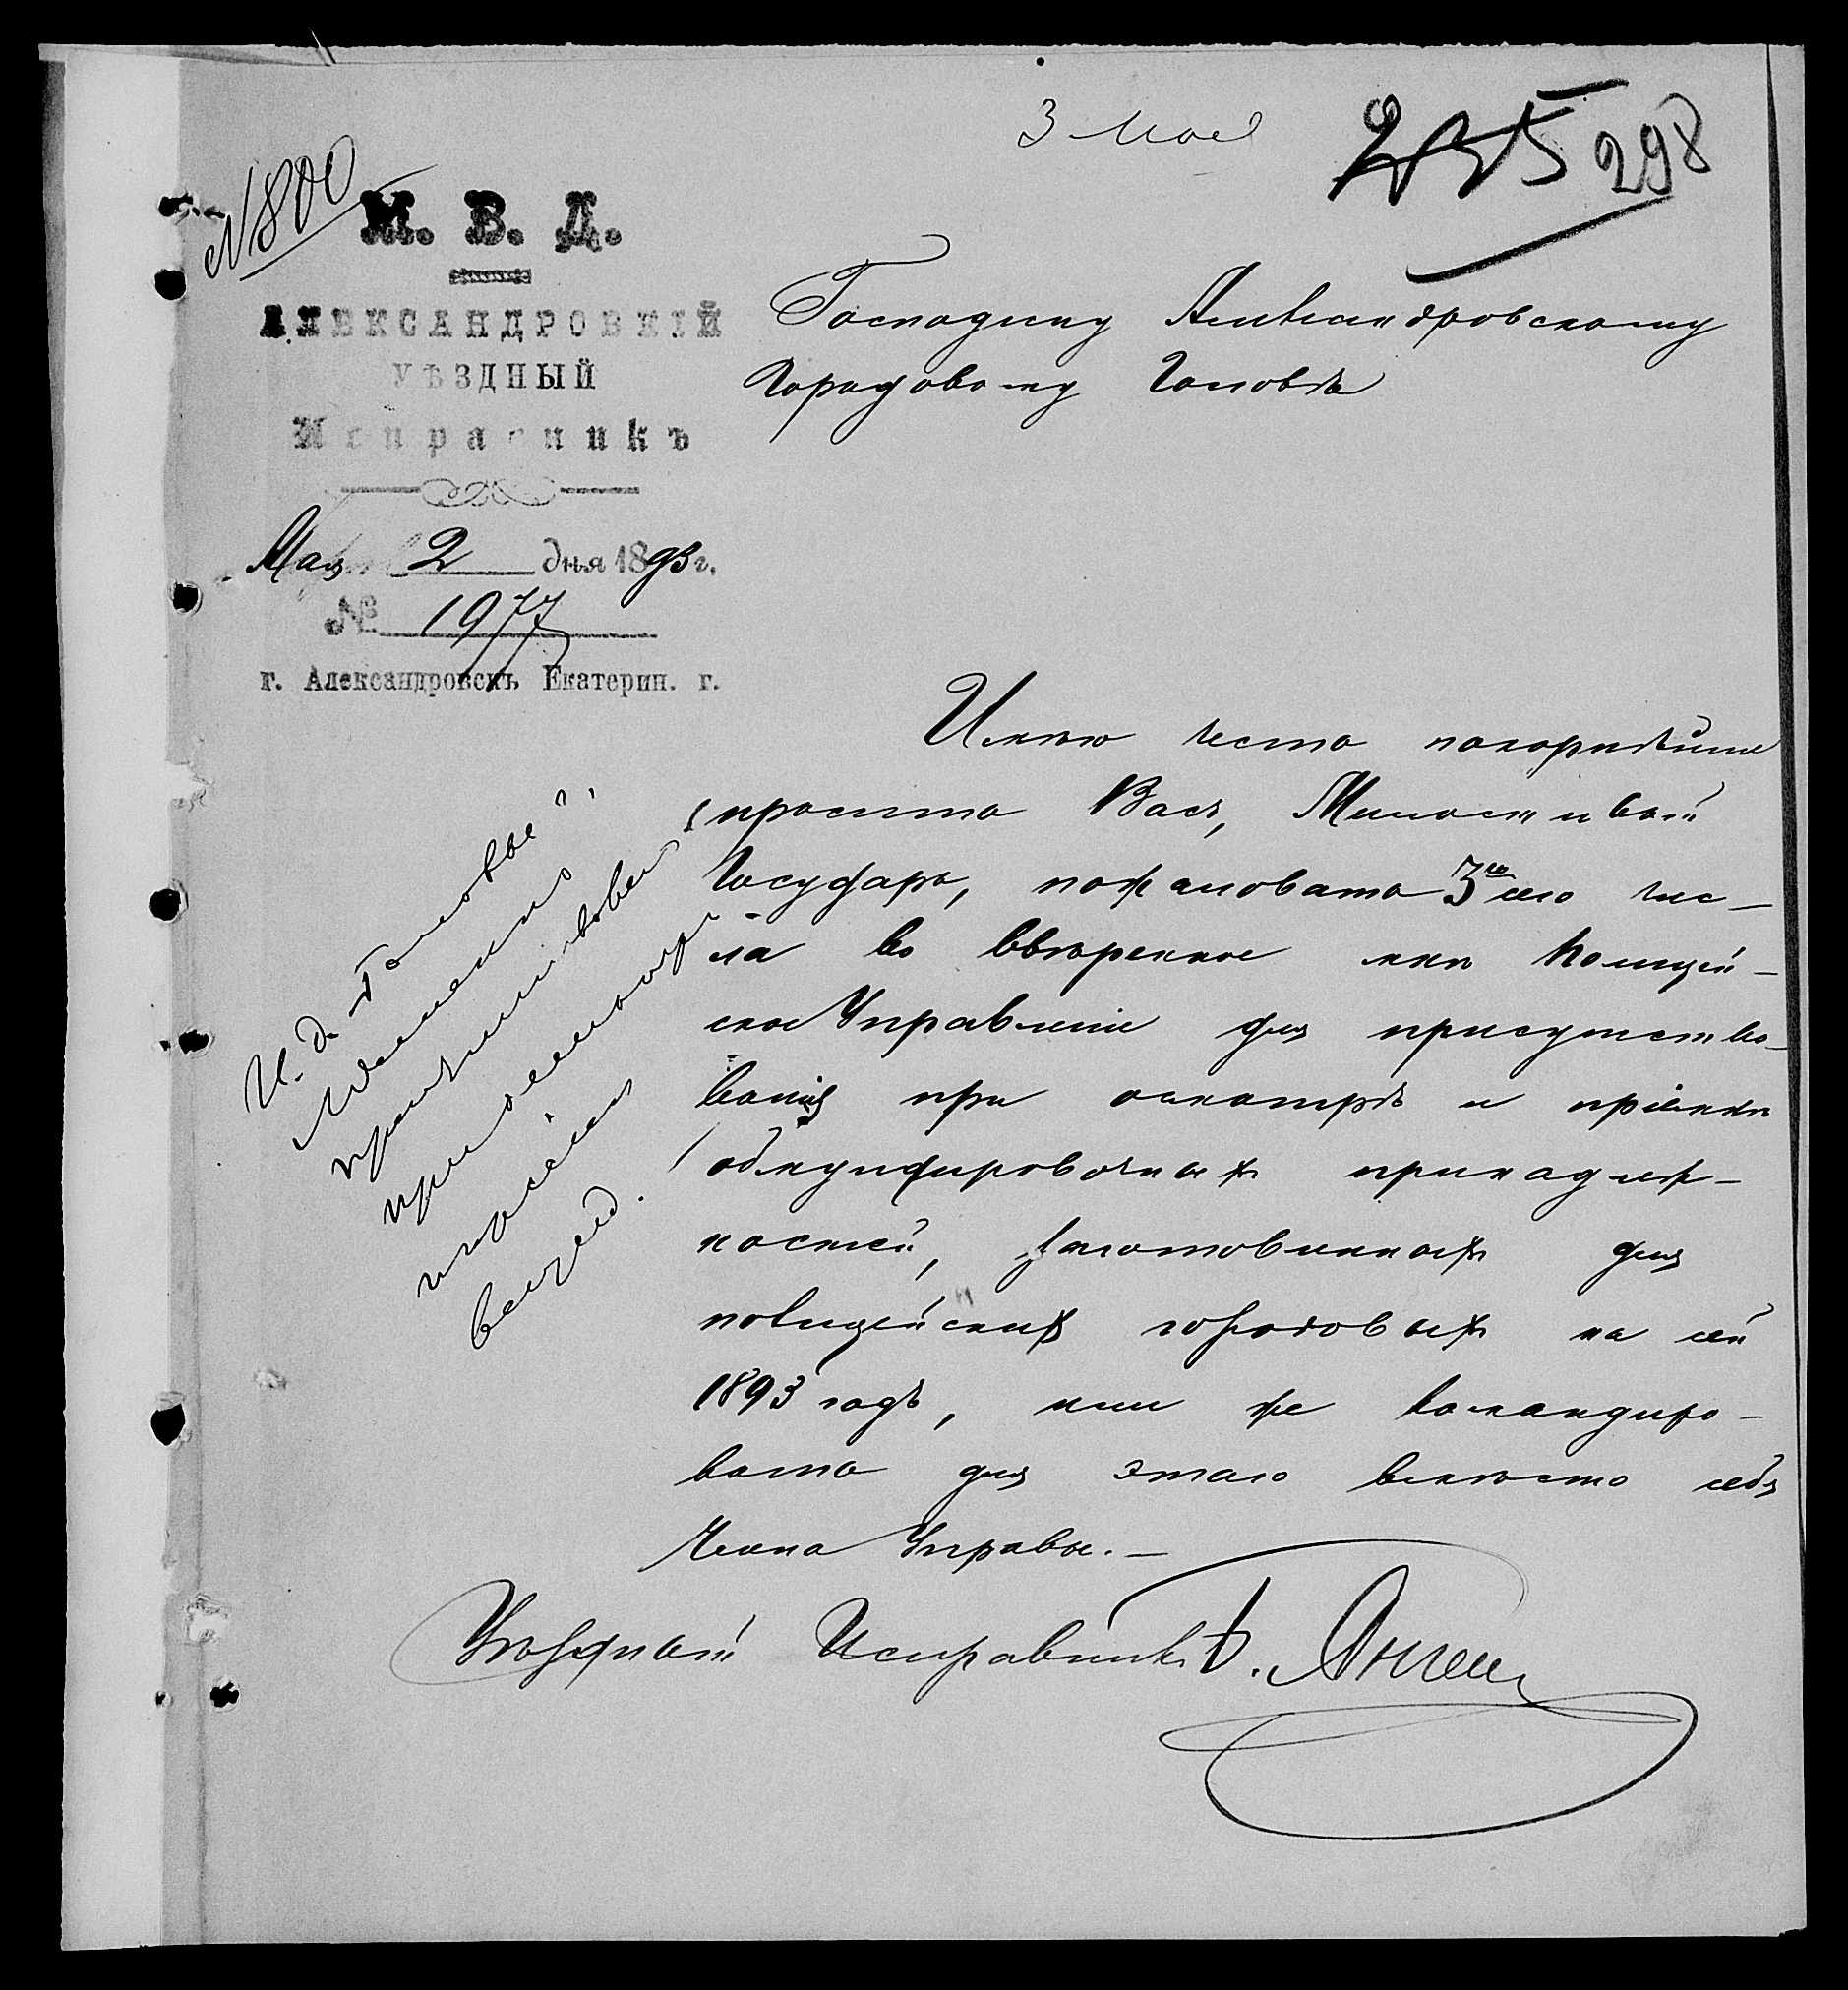 3 Мая
295 298
№ 800
М. В. Д.
АЛЕКСАНДРОВКІЙ
УѢЗДНЫЙ
Исправникъ
Мая 2 дня 1893 г.
№ 1977
г. Александровскъ Екатерин. г.
Господину Александровскому
Городовому Головѣ
Имѣю честь покорнѣйше
просить Васъ, Милостивый
Государь, пожаловать 3го сего чис-
ла во ввѣренное мнѣ Полицей-
ское Управленіе для присутство-
ванія при осмотрѣ и пріемкѣ
обмундировочныхъ принадлеж-
ностей, заготовленныхъ для
полицейскихъ городовыхъ на сей
1893 годъ, или же командиро-
вать для этого вмѣсто себя
Члена Управы.—
Уѣздный Исправникъ
И. д. Головы
вещей.